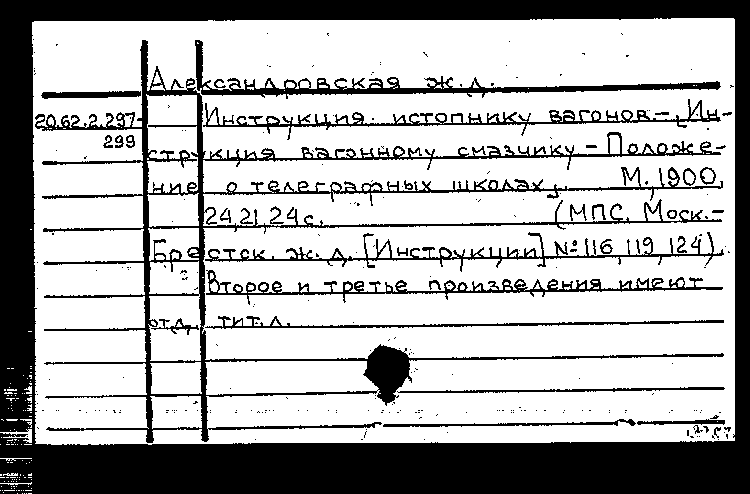 Александровская ж.д.
20.62.2.297- Инструкция истопнику вагонов.-[Ин-
299 струкция вагонному смазчику - Положе-
ние о телеграфных школах]. М., 1900.
24,21,24 с. (МПС. Моск.-
Брестск. ж.д. [Инструкции] №116,119,124).
Второе и третье произведения имеют
отд. тит.л.